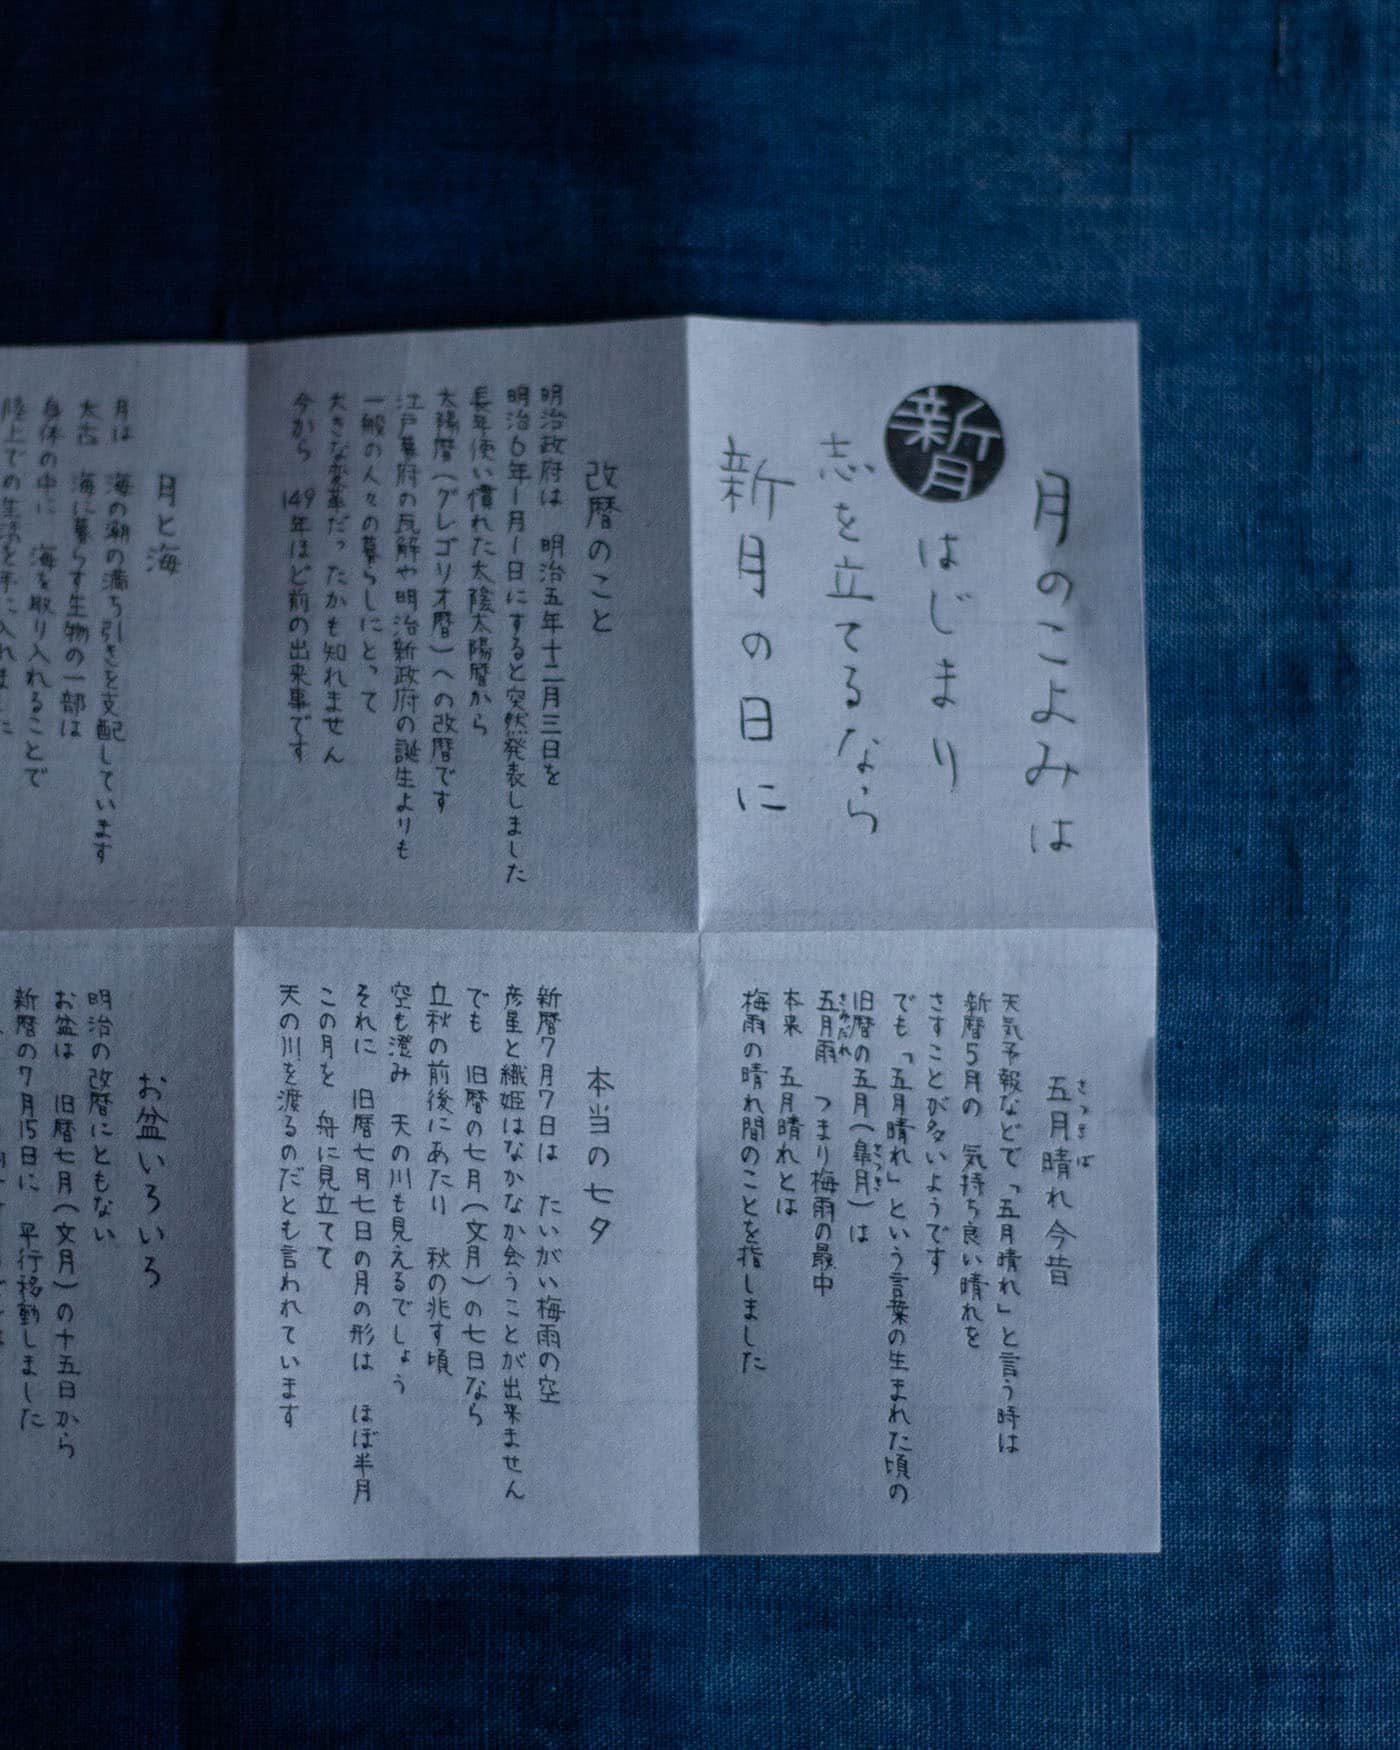 月のこよみは
新月 はじまり
志を立てるなら
新月の日に
改暦のこと
明治政府は 明治五年十二月三日を
明治6年1月1日にすると突然発表しました
長年使い慣れた太陰太陽暦から
太陽暦(グレゴリオ暦)への改暦です
江戸幕府の瓦解や明治新政府の誕生よりも
一般の人々の暮らしにとって
大きな変革だったかも知れません
今から 149年ほど前の出来事です
月と海
月は 海の潮の満ち引きを支配しています
太古 海に暮らす生物の一部は
身体の中に 海を取り入れることで
陸上での生活を手に入れました
五月晴れ今昔
さつきば
天気予報などで「五月晴れ」と言う時は
新暦5月の 気持ち良い晴れを
さすことが多いようです
でも「五月晴れ」という言葉の生まれた頃の
旧暦の五月(皐月)は
さつき
五月雨 つまり梅雨の最中
さみだれ
本来 五月晴れとは
梅雨の晴れ間のことを指しました
本当の七夕
新暦7月7日は たいがい梅雨の空
彦星と織姫はなかなか会うことが出来ません
でも 旧暦の七月(文月)の七日なら
立秋の前後にあたり 秋の兆す頃
空も澄み 天の川も見えるでしょう
それに 旧暦七月七日の月の形は ほぼ半月
この月を 舟に見立てて
天の川を渡るのだとも言われています
お盆いろいろ
明治の改暦にともない
お盆は 旧暦七月(文月)の十五日から
新暦の7月15日に 平行移動しました